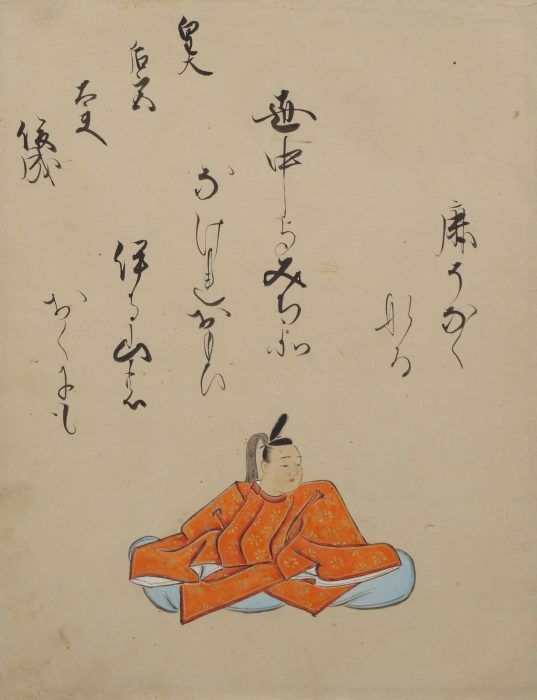 皇太
后宮
大夫
俊成
世中よみち社
なけれおもひ
伊る山の
おくにも
鹿そなく
なる